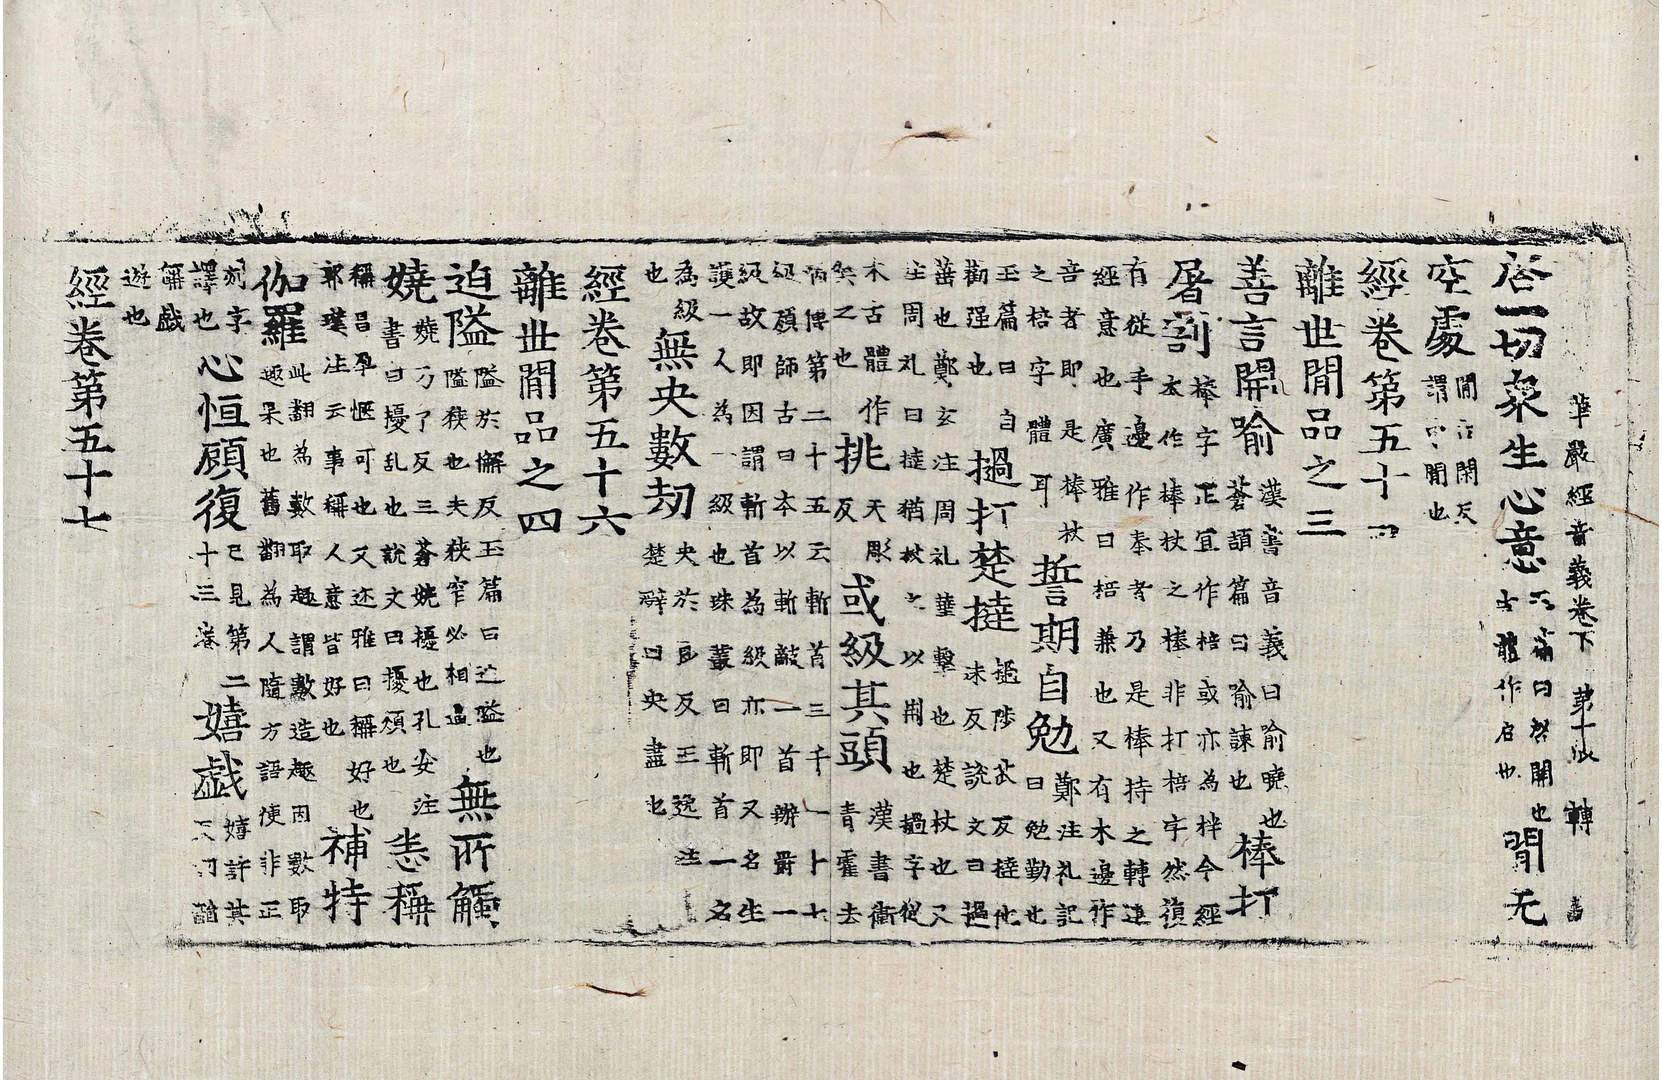 華嚴經音義卷下 第十 張 轉
啓一切衆生心意 篇曰啓開也 古體作启也 閒无
空處 閒 閑反 謂中閒也
經卷第五十
離世閒品之三
善言開喻 漢書音義曰喻曉也 蒼頡篇曰喻諫也 棒打
屠割 棒字正宜作棓或亦為桙今經 本作棒杖之棒非打棓字然復
有從手邊作奉者乃是捧持之轉連 經意也廣雅曰棓兼也又有木邊作
音者即是棒杖 之棓字體耳 誓期自勉 鄭注礼記 曰勉勤也
玉篇曰自 勸强也 撾打楚撻 撾陟苽反撻他 末反說文曰撾
蓋也鄭玄注周礼華擊也楚杖也又 注周礼曰撻猶杖之以荆也撾字從
木古體作 挑 天彫 反 或級其頭 漢書衛 青霍去
病傳第二十五云斬首三千一十七 級顔師古曰本以斬敵一首辧爵一
級故即因謂斬首為級亦即又名生 護一人為一級也珠叢曰斬首一名
為級 也 無央數劫 央於良反王逸注 楚辭曰央盡也
經卷第五十六
離世閒品之四
迫隘 隘於懈反玉篇曰迮隘也 隘狹也夫狹窄必相逼 無所觸
嬈 嬈乃了反三蒼嬈擾也孔安注 書曰擾乱也說文曰擾煩也 恚稱
稱昌孕惬可也又迩雅曰稱好也 郭璞注云事稱人意皆好也 補特
伽羅 此翻為數取趣謂數造趣因數取 趣果也舊翻為人隨方語便非正
譯也 心恒顧復 已見第二 十三卷 嬉戯 嬉許其
遊也
經卷第五十七